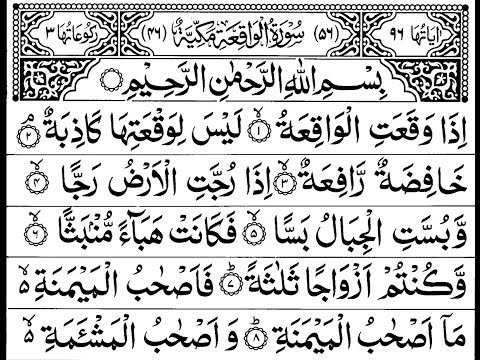 اٰيَاتُهَا ٩٦ (٥٦) سُوْرَةُ الْوَاقِعَةِ مَكِّيَّةٌ (٤٦) رُكُوْعَاتُهَا ٣
بِسْمِ اللهِ الرَّحْمٰنِ الرَّحِيْمِ
اِذَا وَقَعَتِ الْوَاقِعَةُ ۙ﴿١﴾ لَيْسَ لِوَقْعَتِهَا كَاذِبَةٌ ۘ﴿٢﴾
خَافِضَةٌ رَّافِعَةٌ ۙ﴿٣﴾ اِذَا رُجَّتِ الْاَرْضُ رَجًّا ۙ﴿٤﴾
وَّبُسَّتِ الْجِبَالُ بَسًّا ۙ﴿٥﴾ فَكَانَتْ هَبَآءً مُّنْۢبَثًّا ۙ﴿٦﴾
وَّكُنْتُمْ اَزْوَاجًا ثَلٰثَةً ؕ﴿٧﴾ فَاَصْحٰبُ الْمَيْمَنَةِ ۙ۬
مَاۤ اَصْحٰبُ الْمَيْمَنَةِ ؕ﴿٨﴾ وَ اَصْحٰبُ الْمَشْـَٔمَةِ ۙ۬